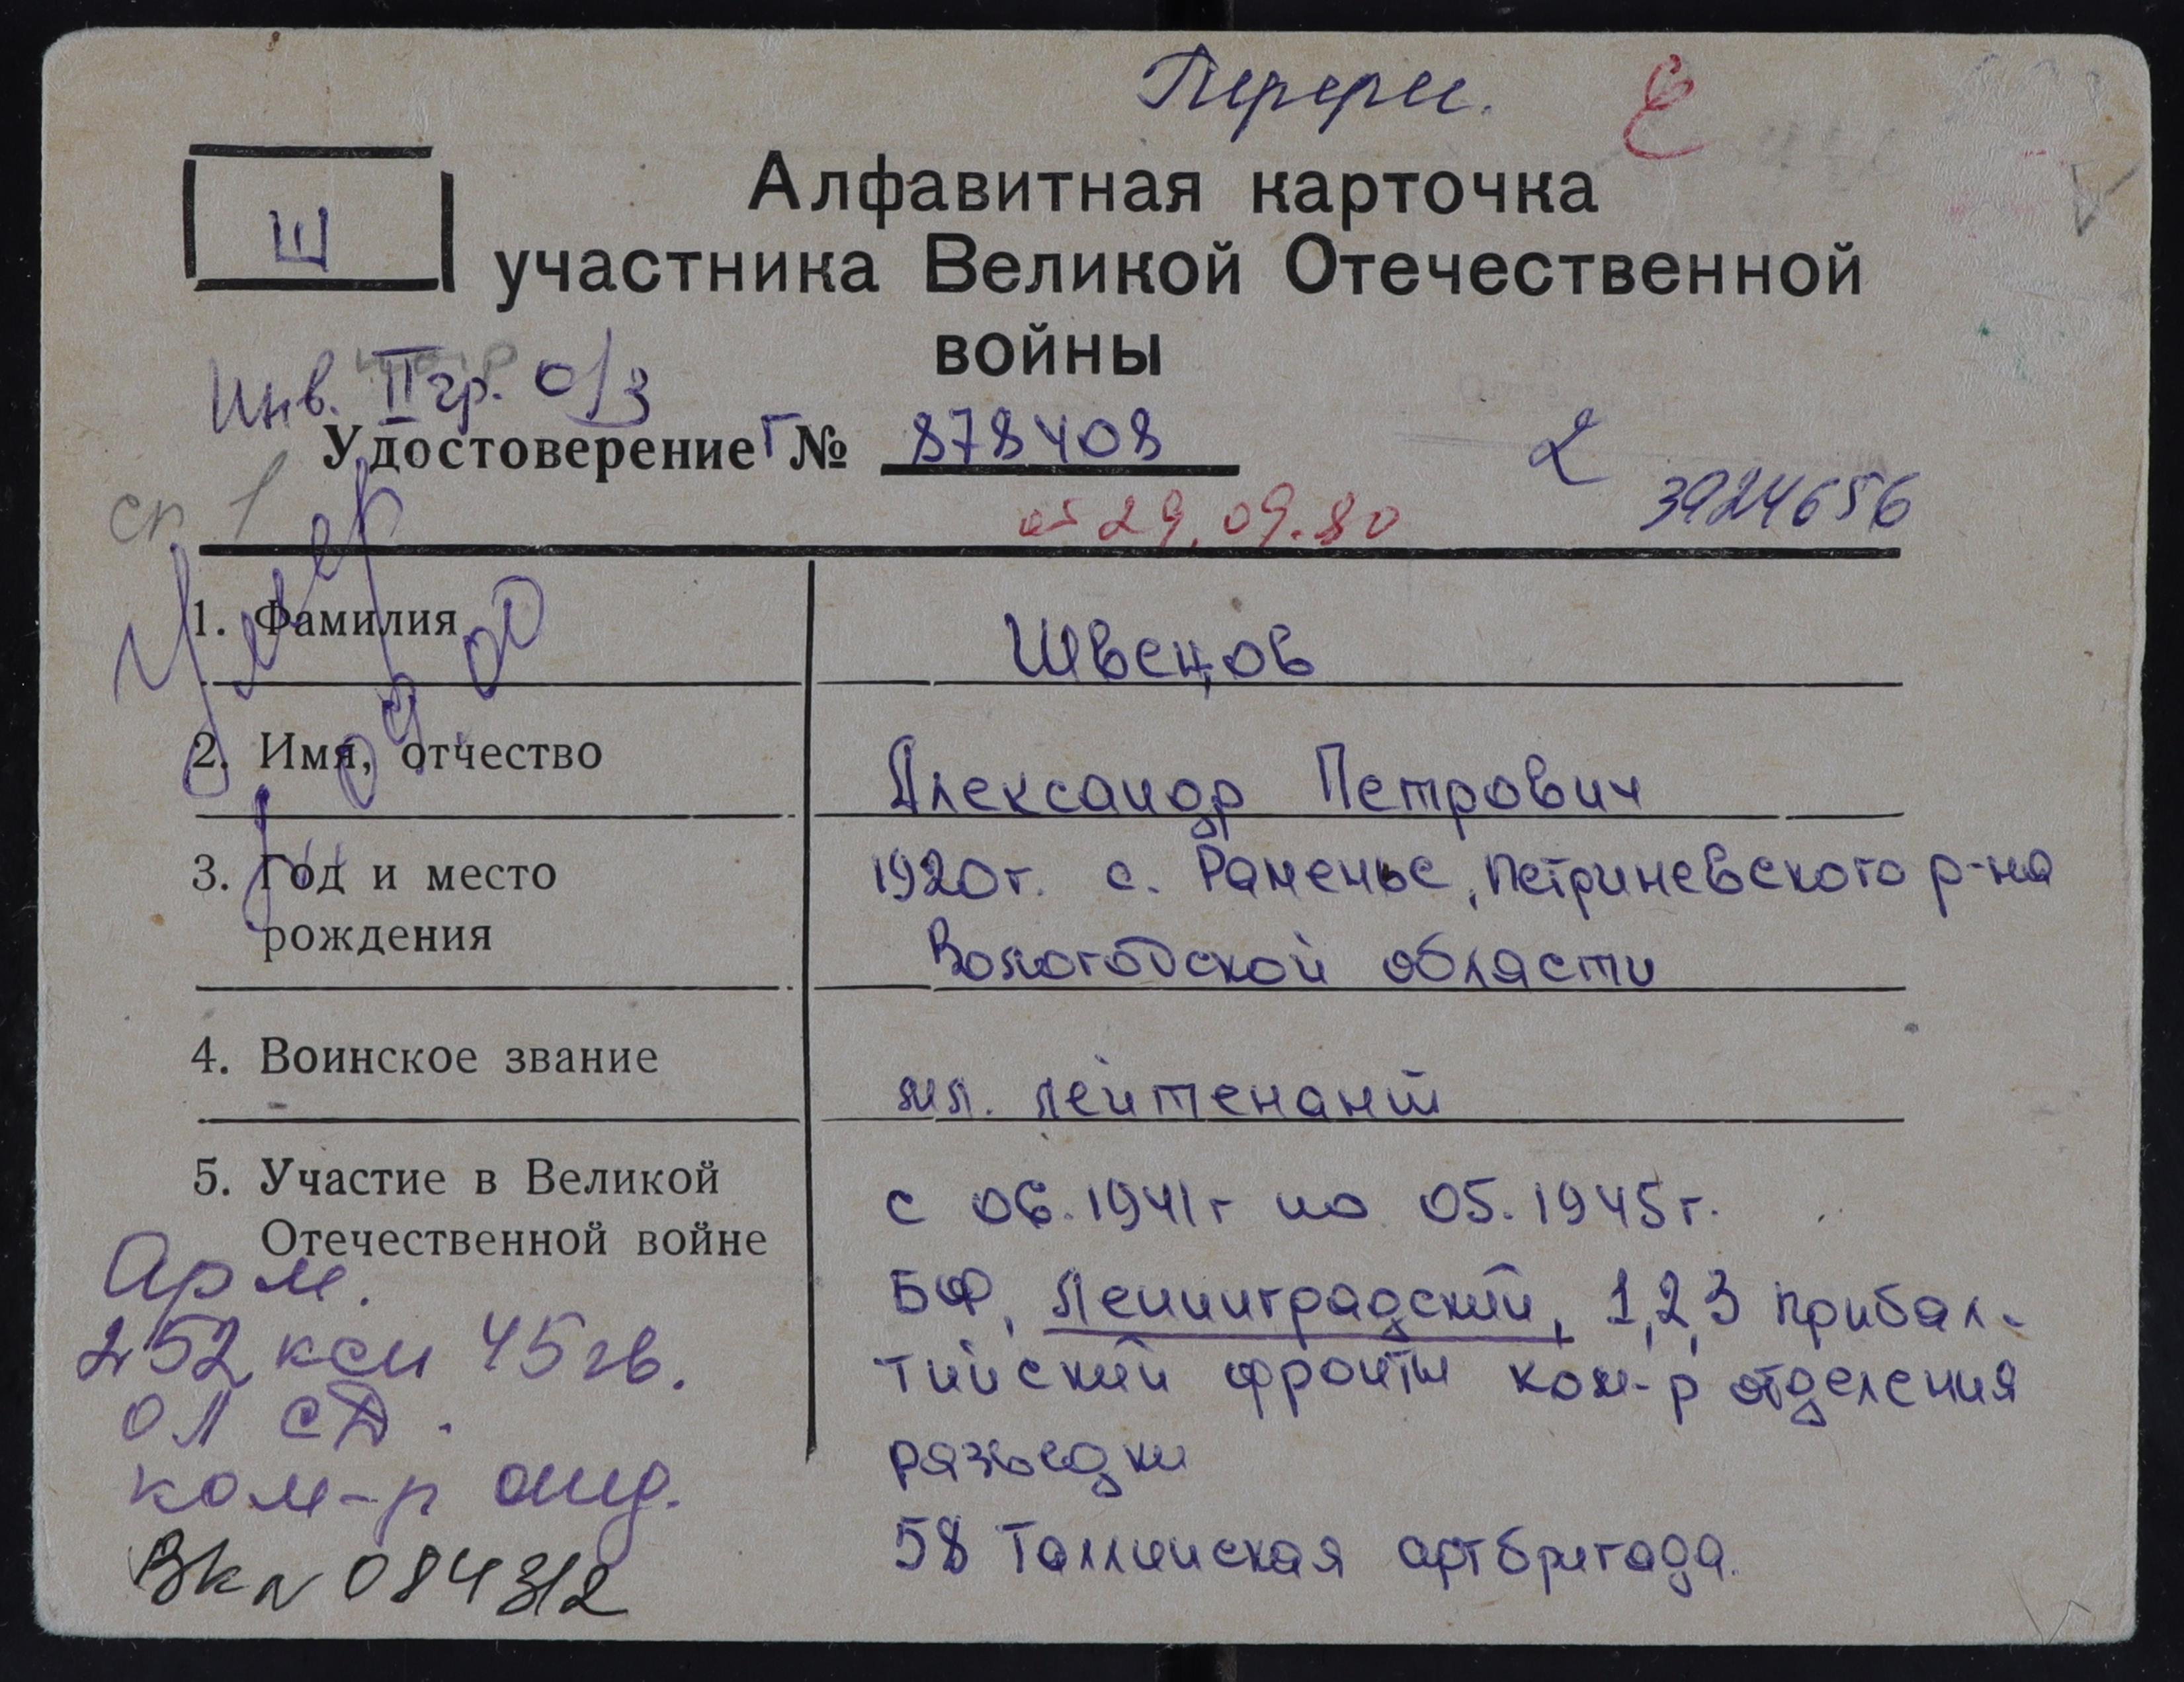 Перерег.
Ш
Алфавитная карточка
участника Великой Отечественной
войны
Инв. II гр. о/з
Удостоверение Г № 878408
2
3924656
от 29.09.80
сп 1
Умер
09 00
1. Фамилия
Швецов
2. Имя, отчество
Александр Петрович
3. Год и место
рождения
1920г. с. Раменье, Петриневского р-на
Вологодской области
4. Воинское звание
мл. лейтенант
5. Участие в Великой
Отечественной войне
с 06.1941г по 05.1945г.
БФ, Ленинградский, 1,2,3 Прибал-
тийский фронты ком-р отделения
разведки
58 Таллинская артбригада.
Арм.
252 45 гв.
СД.
ком-р отд.
ВК № 084312